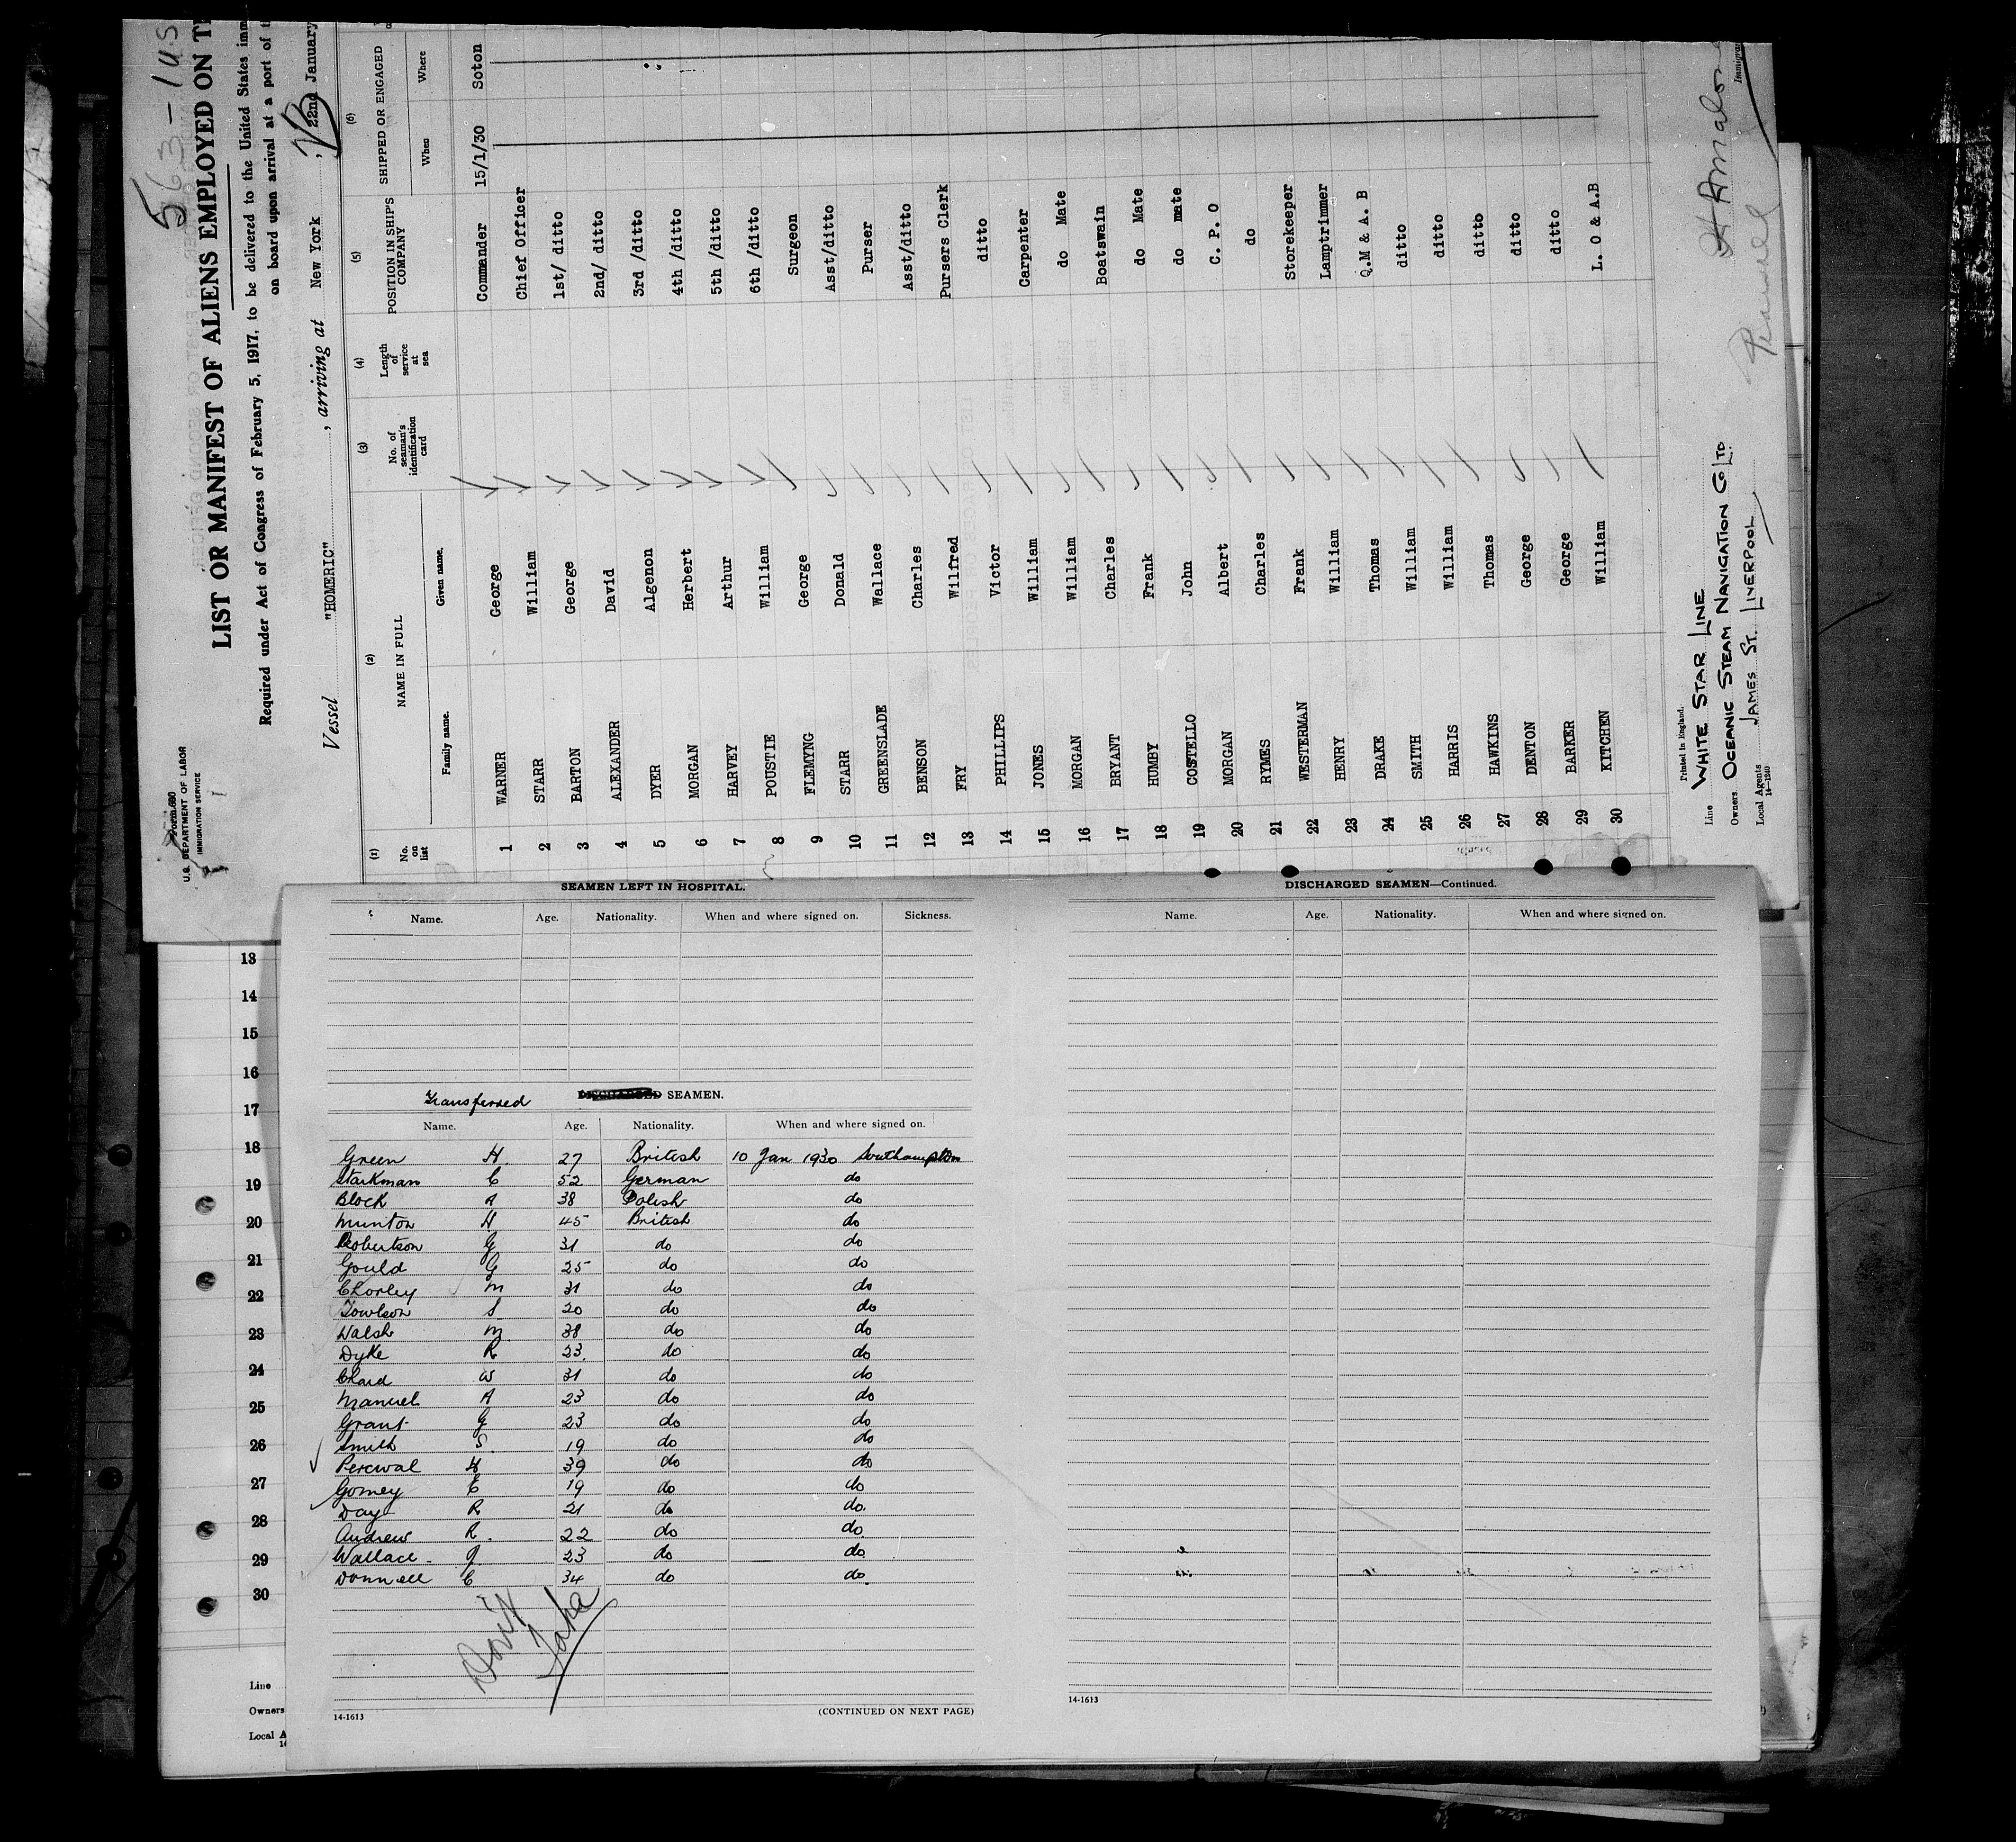 563-145
Form 680
U.S. DEPARTMENT OF LABOR
IMMIGRATION SERVICE
LIST OR MANIFEST OF ALIENS EMPLOYED ON T
Required under Act of Congress of February 5, 1917, to be delivered to the United States imm
on board upon arrival at a port of t
Vessel "HOMERIC", arriving at New York, 22nd January
(1) (2) (3) (4) (5) (6)
No. on list NAME IN FULL No. of seaman's identification card Length of service at sea POSITION IN SHIP'S COMPANY SHIPPED OR ENGAGED
Family name. Given name. When Where
1 WARNER George Commander 15/1/30 Soton
2 STARR William Chief Officer
3 BARTON George 1st/ ditto
4 ALEXANDER David 2nd/ ditto
5 DYER Algenon 3rd /ditto
6 MORGAN Herbert 4th /ditto
7 HARVEY Arthur 5th /ditto
8 POUSTIE William 6th /ditto
9 FLEMYNG George Surgeon
10 STARR Donald Asst/ditto
11 GREENSLADE Wallace Purser
12 BENSON Charles Asst/ditto
13 FRY Wilfred Pursers Clerk
14 PHILLIPS Victor ditto
15 JONES William Carpenter
16 MORGAN William do Mate
17 BRYANT Charles Boatswain
18 HUMBY Frank do Mate
19 COSTELLO John do mate
20 MORGAN Albert C. P. O
21 RYMES Charles do
22 WESTERMAN Frank Storekeeper
23 HENRY William Lamptrimmer
24 DRAKE Thomas Q.M & A. B
25 SMITH William ditto
26 HARRIS William ditto
27 HAWKINS Thomas ditto
28 DENTON George ditto
29 BARKER George ditto
30 KITCHEN William L. O & A.B
Printed in England.
Line WHITE STAR LINE
Owners OCEANIC STEAM NAVIGATION CO LTD.
Local Agents JAMES ST. LIVERPOOL
14-1240
Immigra
13
14
15
16
17
18
19
20
21
22
23
24
25
26
27
28
29
30
Line
Owners
Local A
SEAMEN LEFT IN HOSPITAL.
Name. Age. Nationality. When and where signed on. Sickness.
Transferred DISCHARGED SEAMEN.
Name. Age. Nationality. When and where signed on.
Green H. 27 British 10 Jan 1930 Southampton
Starkman C 52 German do
Block A 38 Polish do
Munton H 45 British do
Robertson G 31 do do
Gould G 25 do do
Chorley M 31 do do
Towlson S 20 do do
Walsh M 38 do do
Dyke R 23 do do
Chard W 31 do do
Manuel A 23 do do
Grant G 23 do do
Smith S. 19 do do
Percival H 39 do do
Gomey E 19 do do
Day R 21 do do.
Andrew R. 22 do do
Wallace J. 23 do do
Donnell C 34 do do.
Don't
Take
14-1613 (CONTINUED ON NEXT PAGE)
DISCHARGED SEAMEN—Continued.
Name. Age. Nationality. When and where signed on.
14-1613